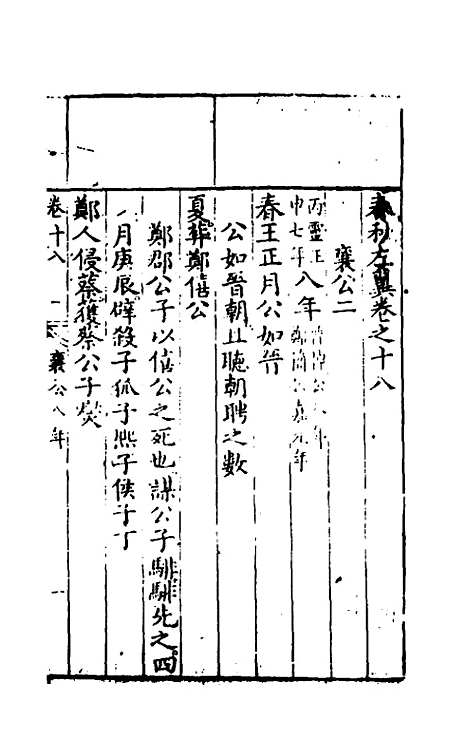 春秋左翼卷之十八
襄公二
丙靈王
申七年八年晉悼公八年
鄭簡公嘉元年
春王正月公如晉
公如晉朝且聽朝聘之數
夏葬鄭僖公
鄭群公子以僖公之死也謀公子騑騑先之四
月庚辰辟殺子狐子熙子侯子丁
鄭人侵蔡獲蔡公子燮
卷十八 一 襄公八年